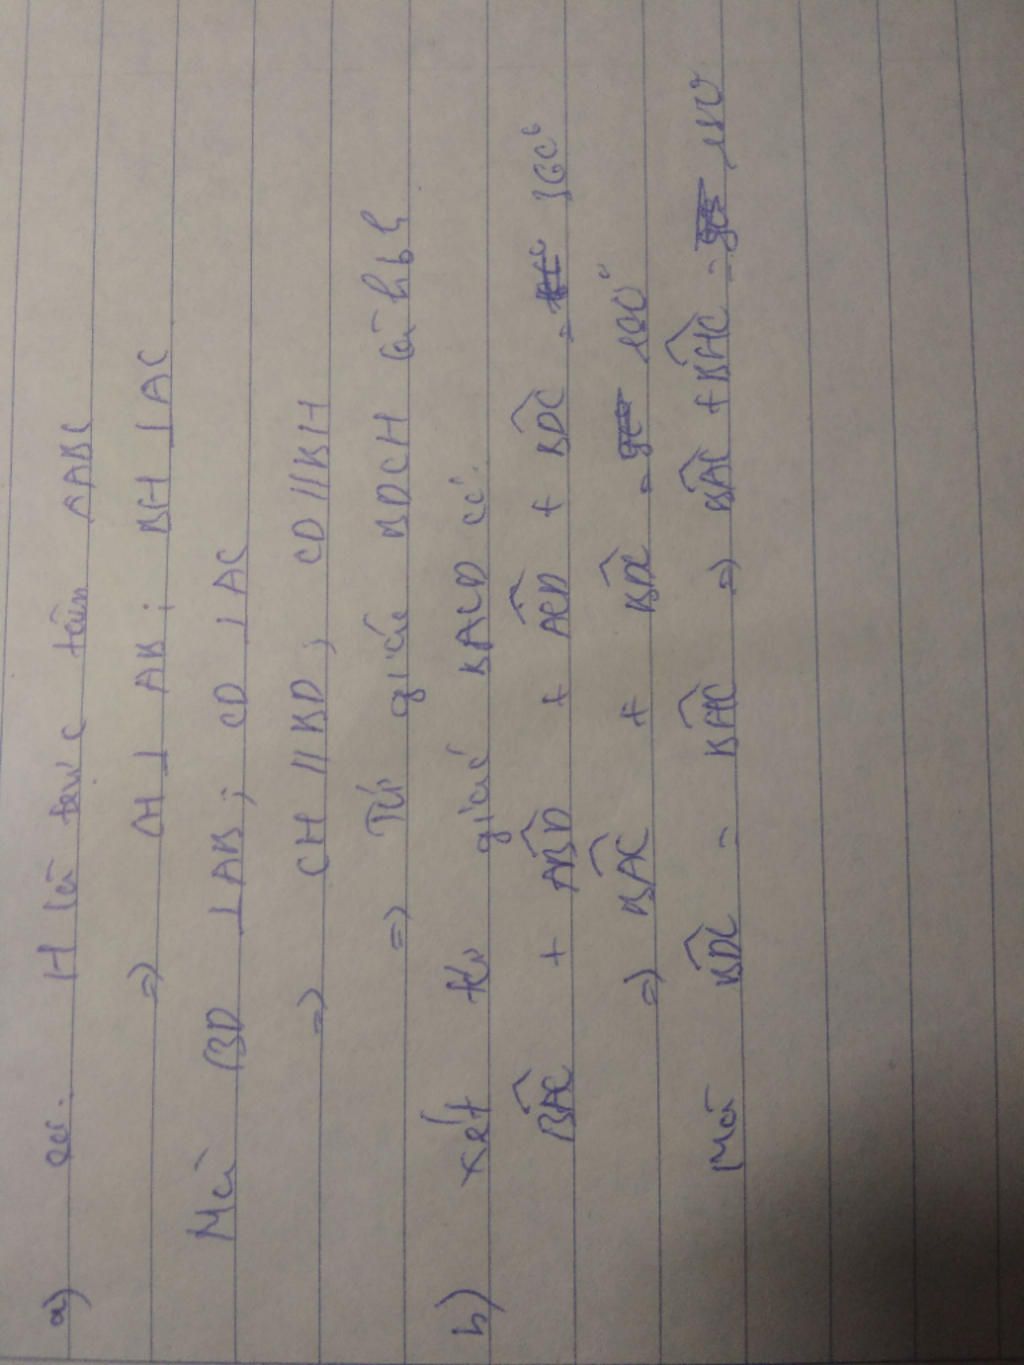 a) có. H là trực tâm △ABC
=> CH ⊥ AB ; BH ⊥ AC
Mà BD ⊥ AB ; CD ⊥ AC
=> CH // BD ; CD // BH
=> Tứ giác BDCH là hbh
b) Xét tứ giác BACD có:
BAC + ABD + ACD + BDC = 360°
=> BAC + BDC = 180°
Mà BDC = BHC => BAC + BHC = 180